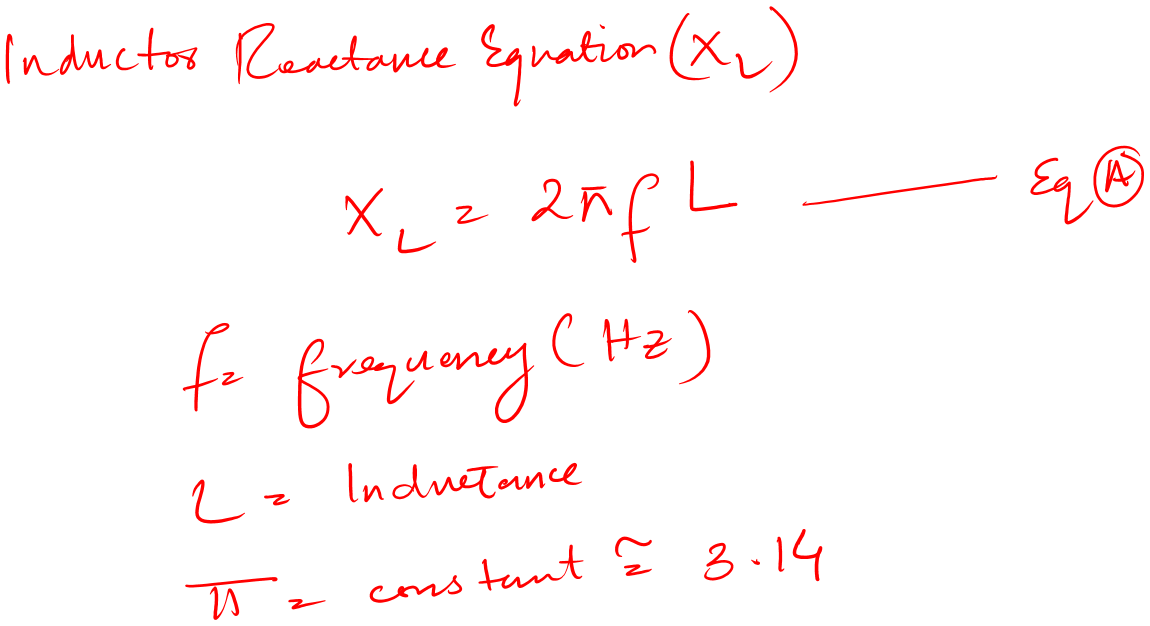 Inductor Reactance Equation (X_L)
X_L = 2πf L ——— Eq (A)
f = frequency (Hz)
L = Inductance
π = constant ≅ 3.14